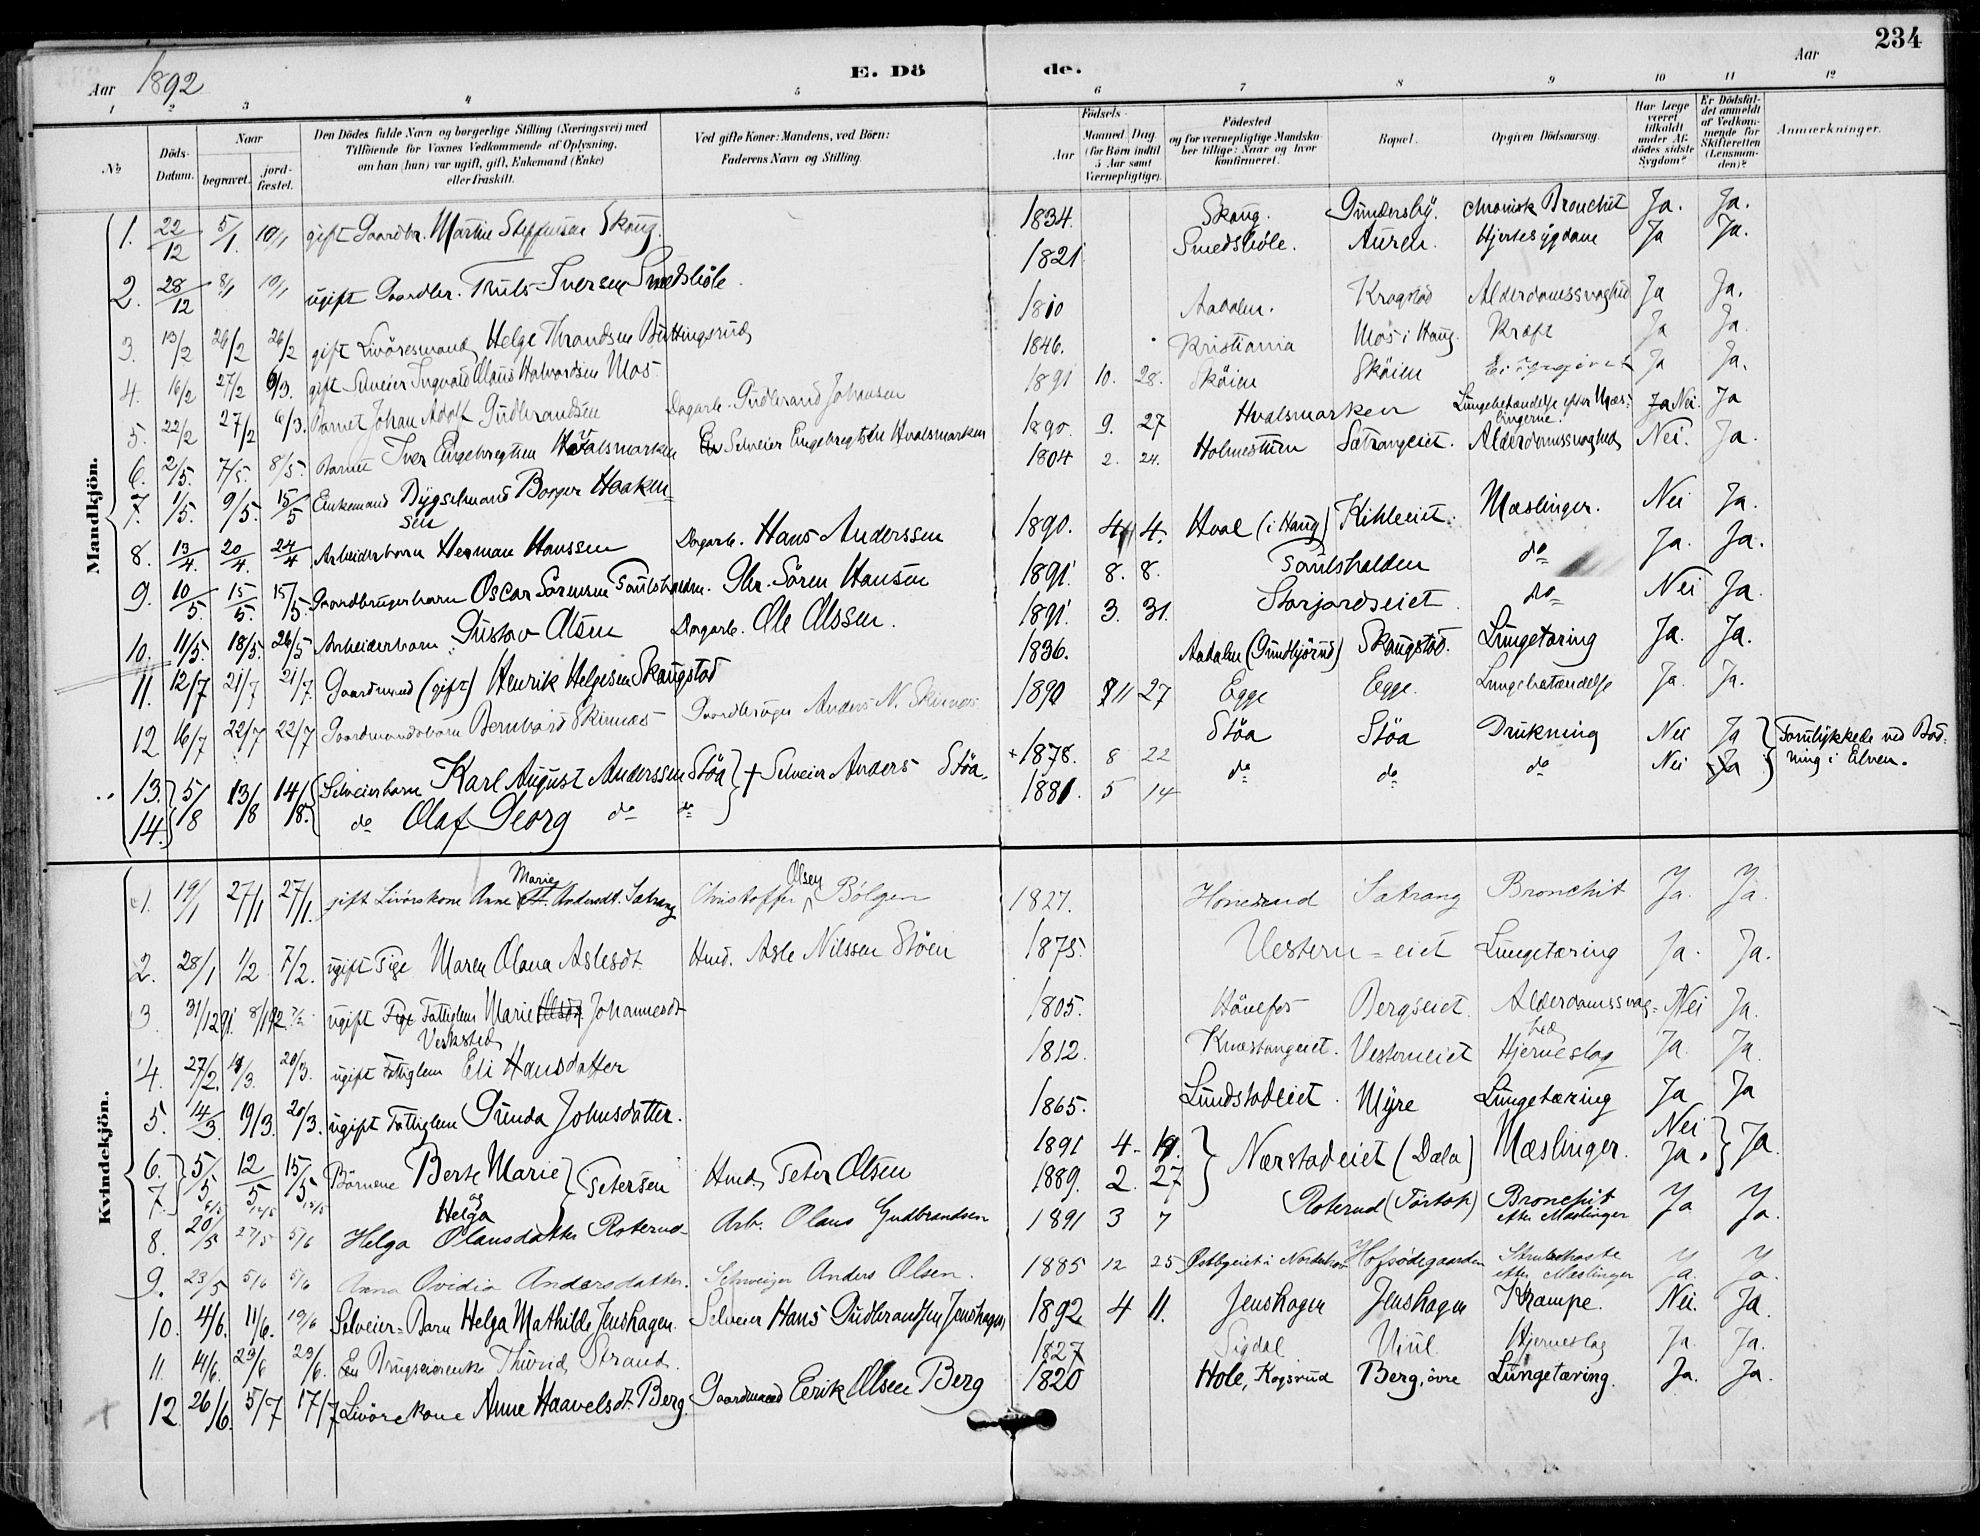 Aar 1892
E. Dö de.
Aar
234
1 2 3 4 5 6 7 8 9 10 11 12
№
Döds-Datum.
Naar
begravet.
jord-fæstet.
Den Dödes fulde Navn og borgerlige Stilling (Næringsvei) med
Tilföiende for Voxnes Vedkommende af Oplysning,
om han (hun) var ugift, gift, Enkemand (Enke)
eller fraskilt.
Ved gifte Koner: Mandens, ved Börn:
Faderens Navn og Stilling.
Födsels-
Aar
Maaned Dag
(for Børn indtil
5 Aar samt
Værnepligtige).
Födested
og for værnepligtige Mandska-
ber tillige: Naar og hvor
konfirmeret.
Bopæl.
Opgiven Dödsaarsag.
Har Læge
været
tilkaldt
under Af-
dödes sidste
Sygdom?
Er Dödsfal-
det anmeldt
af Vedkom-
mende for
Skifteretten
(Lensman-
den)?
Anmærkninger.
Mandkjön.
1. 22/12 5/1. 10/1 gift Gaardbr. Martin Steffensen Skoug. 1834. Skoug. Gundersby. chronisk Bronchit Ja. Ja.
2. 28/12 8/1 10/1 ugift Gaardbr. Truls Iversen Smedshöle. 1821 Smedshöle. Auren. Hjertesygdom Ja Ja.
3. 13/2 26/2 26/2 gift Livöresmand Helge Thrandsen Buttingsrud 1810 Aadalen. Kragstad Alderdomssvaghed Ja Ja.
4. 16/2 27/2 6/3. gift Selveier Ingvald Olaus Halvordsen Mos 1846. Kristiania Mos i Haug. Kræft Ja Ja.
5. 22/2 27/2 6/3. Barnet Johan Adolf Gudbrandsen Dagarb. Gudbrand Johansen 1891 10. 28. Sköien Sköien Ei opgivet Ja Ja.
6. 2/5. 7/5. 8/5. Barnet Iver Engebregtsen Hvalsmarken Selveier Engebregtsen Hvalsmarken 1890. 9. 27 Hvalsmarken Lungebetændelse efter Mæs-
lingerne. Ja Nei. Ja
7. 1/5. 9/5. 15/5 Enkemand Bygselmand Borger Haaken-
sen 1804 2. 24. Holmestuen Sætrangeiet. Alderdomssvaghed Nei. Ja.
8. 13/4. 20/4. 24/4 Arbeiderbarn Herman Hanssen Dagarb. Hans Anderssen 1890. 4. Hval (i Haug) Kihleeiet. Mæslinger. Nei Ja.
9. 10/5. 15/5. 15/5. Gaardbrugerbarn Oscar Sörensen Gbr. Sören Hansen 1891. 8. 8. do Ja. Ja.
10. 11/5. 18/5. 26/5 Arbeiderbarn Gustav Olsen Dagarb. Ole Olssen. 1891. 3. 31. Storjordseiet. do Nei Ja.
11. 12/7 21/7 21/7. Gaardmand (gift) Henrik Helgesen Skougstad 1836. Aadalen (Gundbjörud) Skougstad. Lungetæring Ja. Ja.
12 16/7 22/7 22/7 Gaardmandsbarn Bernhard Skinnes Gaardbruger Anders N. Skinnes. 1890 11 27 Egge Egge. Lungebetændelse Ja. Ja.
13. 5/8 13/8 14/8. Selveierbarn Karl August Anderssen Stöa + Selveier Anders Stöa. + 1878. 8 22 Stöa Stöa Drukning Nei Ja Forulykkede ved Bad-
ning i Elven.
14. do Olaf Georg do do 1881. 5 14 do do do Nei Ja
Kvindekjön.
1. 19/1 27/1 27/1. gift Livörskone Anne Marie Andersdt. Sætrang Christoffer Olsen Bölgen 1827. Honerud Sætrang Bronchit Ja. Ja.
2. 28/1 1/2 7/2. ugift Pige Maren Olava Aslesdt. Hmd. Asle Nilssen Stöen 1875. Vestern=eiet Lungetæring Ja. Ja.
3. 31/12 91. 8/1 92 7/2 ugift Pige Fattiglem Marie Olsdt Johannesdt
Verksted 1805. Hönefos Bergseiet. Alderdomssvag-
hed Nei Ja.
4. 27/2. 19/3. 20/3. ugift Fattiglem Eli Hansdatter 1812. Knestangeiet. Vesterneiet Hjerneslag Ja. Ja.
5. 14/3 19/3. 20/3. ugift Fattiglem Gunda Johnsdatter. 1865. Lundstadeiet. Myre Lungetæring Ja Ja
6. 5/5 12/5 15/5 Börnene Berte Marie Petersen Hmd. Peter Olsen 1891 4. 19. Nærstadeiet (Dala) Mæslinger. Nei Ja.
7. og Helga 1889. 2. 27 Ja.
8. 20/5 27/5 5/6 Helga Olausdatter Roterud Arb. Olaus Gudbrandsen 1891 3 7 Roterud Bronchit
efter Mæslinger Ja Ja.
9. 23/5 5/6 5/6 Anna Ovidia Andersdatter. Selveier Anders Olsen. 1885 12 25 Hofsödegaarden Strubehoste
efter Mæslinger Ja. Ja.
10. 4/6. 11/6. 19/6 Selveier=Barn Helga Mathilde Jenshagen. Selveier Hans Gudbrandsen Jenshagen 1892 4 11. Jenshagen Jenshagen Krampe. Nei. Ja.
11. 14/6. 23/6 29/6. Brugseierenke Thurid Strand. 1827 Sigdal Uiul. Hjerneslag Ja. Ja.
12. 26/6. 5/7 17/7 Livörekone Anne Haavelsdt. Berg. Gaardmand Eerik Olsen Berg 1820 Hole, Kogsrud Berg, övre Lungetæring. Ja. Ja.